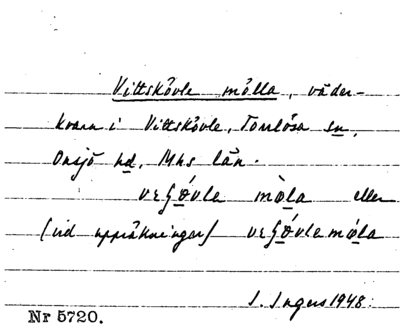 Vittskövle mölla, väder-
kvarn i Vittskövle, Torrlösa sn,
Onsjö hd, Mhs län.
veʃøvle mø̀la eller
(vid uppräkningar) veʃøvlemøla
I. Ingers 1948.
Nr 5720.